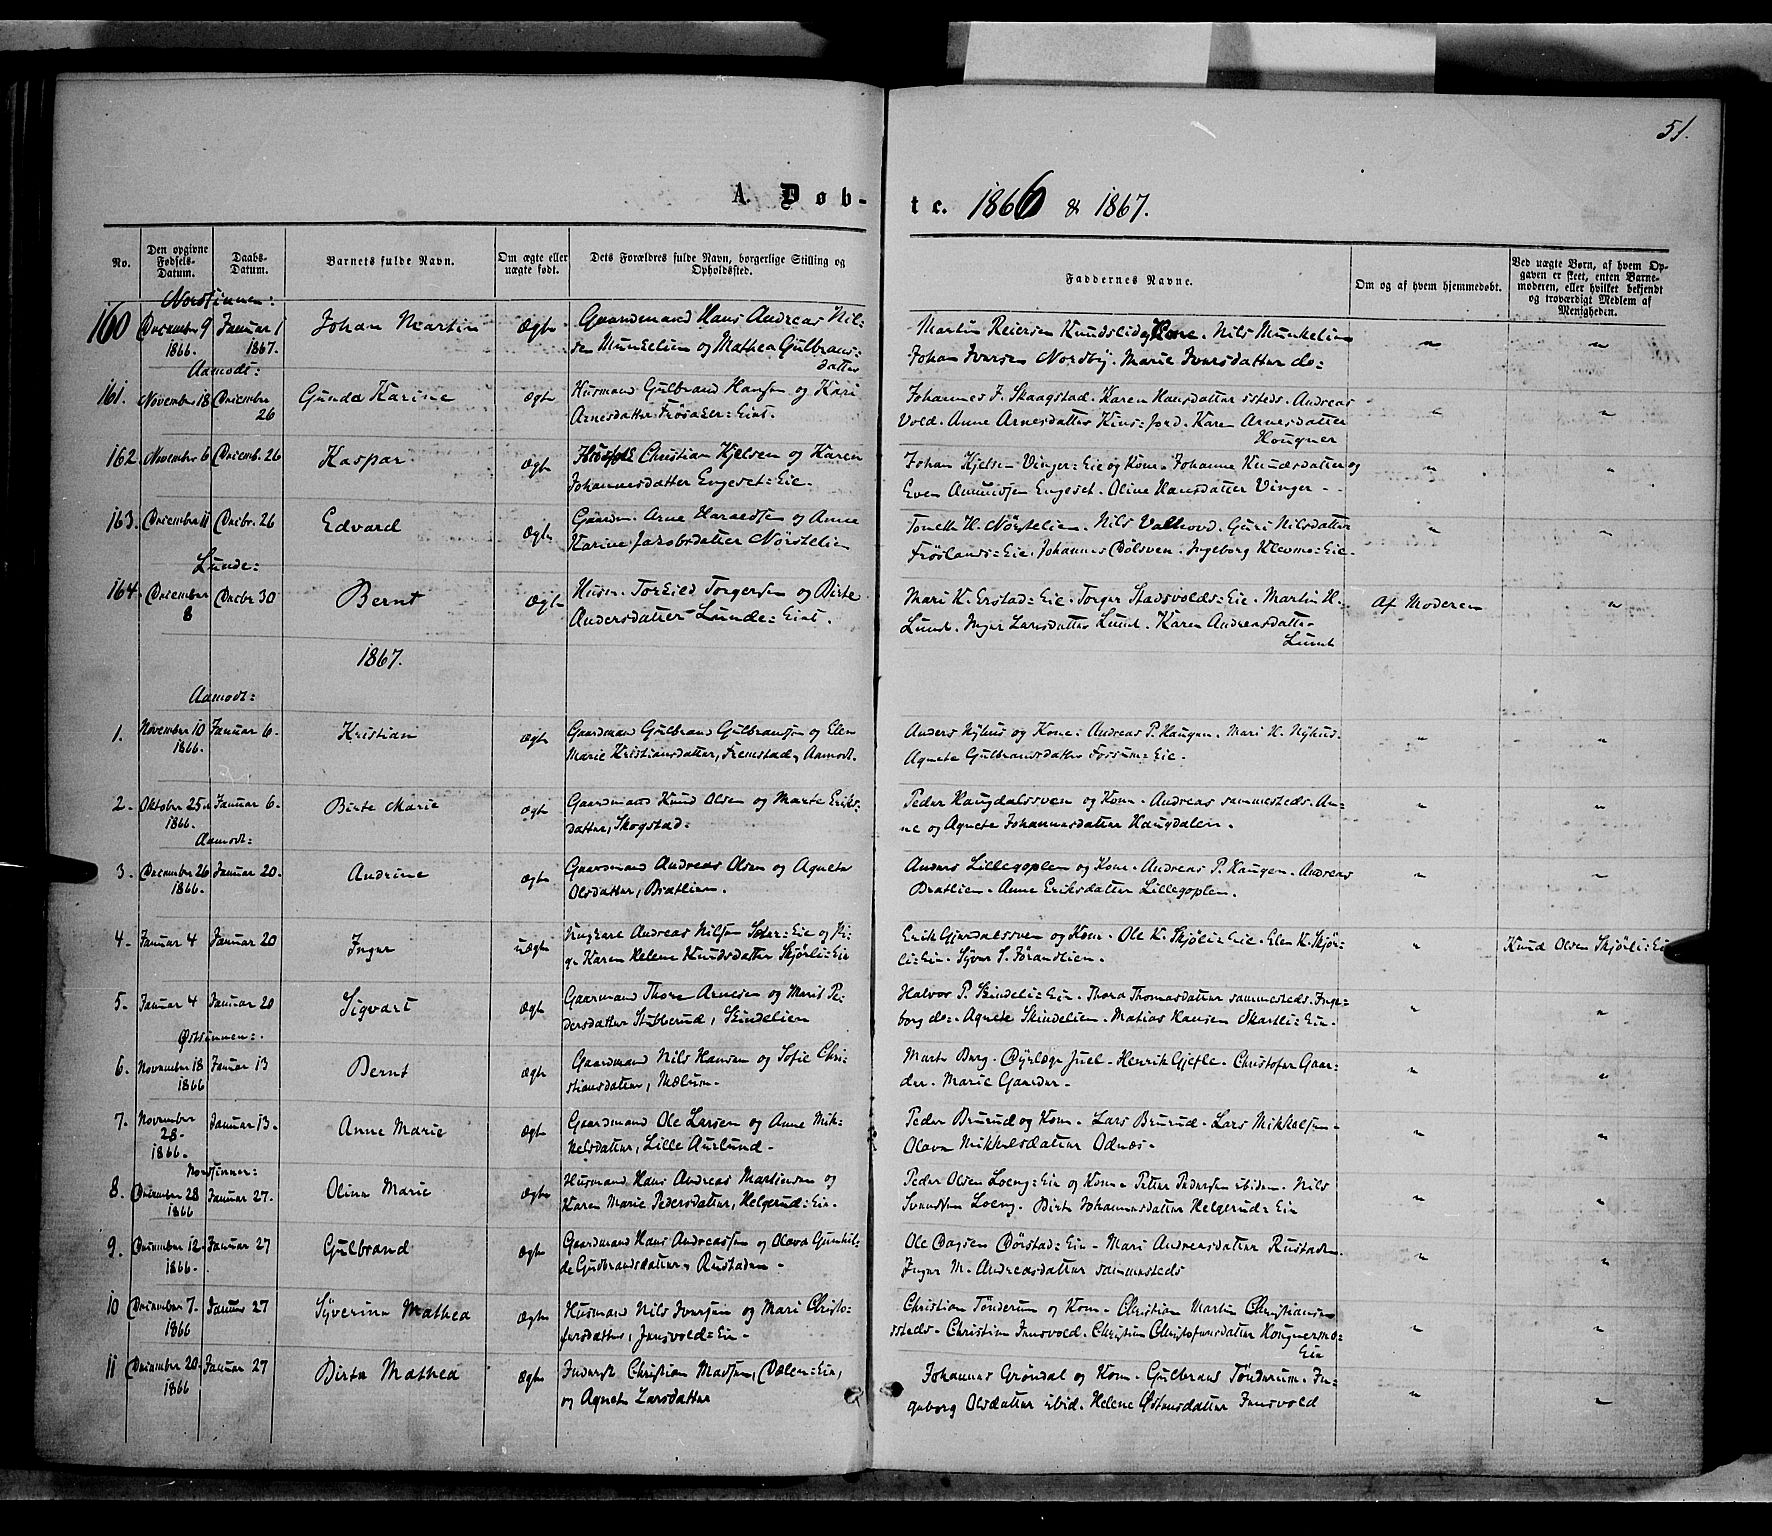 51.
A. Døb- te. 1866 & 1867.
No. | Den opgivne Fødsels-Datum. | Daabs-Datum. | Barnets fulde Navn. | Om ægte eller uægte født. | Dets Forældres fulde Navn, borgerlige Stilling og Opholdssted. | Faddernes Navne. | Om og af hvem hjemmedøbt. | Ved uægte Børn, af hvem Opgaven er skeet, enten Barnemoderen, eller hvilket bekjendt og troværdigt Medlem af Menigheden.
Nordsinnen:
160 December 9 Januar 1 Johan Martin Ægte Gaardmand Hans Andreas Nil- Martin Reiersen Knudslid og Kone. Nils Munkelien " "
1866. 1867. sen Munkelien og Mathea Gulbrans- Johan Iversen Nordby. Marie Iversdatter do=
datter
Aamodt:
161. November 18 December Gunda Karine Ægte Husmand Gulbrand Hansen og Kari Johannes J. Skaagstad. Karen Hansdatter ssteds. Andreas " "
26 Arnesdatter Frøsager=Eiet. Vold. Anne Arnesdatter. Karen Arnesdatter
Hougner
162. November 6 Decemb. 26 Kaspar Ægte Christian Kjelsen og Karen Johan Kjelsen Vinger=Eie og Kone. Johanne Knudsdatter og " "
Johannesdatter Engeset=Eie. Even Amundsen Engeset. Oline Hansdatter Vinger -
163. December 11 Decbr. 26 Edvard Ægte Gaardm. Arne Haraldsen og Anne Toneth H. Nørstelien. Nils Valhovd. Guri Nilsdatter " "
Karine Jacobsdatter Nørstelien Frøslands=Eie. Johannes Bølsven. Ingeborg Klevmo=Eie.
Lunde:
164. December Decbr 30 Bernt Ægte Husm. Torkild Torgersen og Birte Mari K. Erstad=Eie. Torger Stadsvolds=Eie. Martin H. Af Moderen "
8 Andersdatter Lunde=Eiet. Lunde. Inger Larsdatter Lunde. Karen Andreasdatter
Lunde
1867.
Aamodt:
1. November 10 Januar 6. Kristian Ægte Gaardmand Gulbrand Gulbrandsen og Elen Anders Nyhus og Kone. Andreas P. Haugen. Mari H. Nyhus. " "
1866. Marie Kristiansdatter, Fremstad, Aamodt. Agnete Gulbrandsdatter Fossum=Eie.
2. Oktober 25 Januar 6. Birte Marie Ægte Gaardmand Knud Olsen og Marte Eriks- Peder Haugdalssven og Kone. Andreas sammesteds. An- " "
1866. datter, Skogstad. ne og Agnete Johannesdatter Haugdalen.
Aamodt:
3. December 26 Januar 20. Andrine Ægte Gaardmand Andreas Olsen og Agnete Anders Lillegoplen og Kone. Andreas P. Haugen. Andreas " "
1866. Olsdatter, Bratlien. Bratlien. Anne Eriksdatter Lillegoplen.
4. Januar 4 Januar 20 Inger uægte Ungkarl Andreas Nilsen =Eie og Pi- Erik Gjerdalssven og Kone. Ole K. Skjøli=Eie. Elen K. Skjør- " Knud Olsen Skjørli=Eie
ge Karen Helene Knudsdatter Skjørli=Eie li=Eie. Syver S. Jørandlien.
5. Januar 4 Januar 20 Sigvart Ægte Gaarmand Thore Arnesen og Marit Pe- Halvor P. Skindeli=Eie. Thora Thomasdatter sammesteds. Inge- " "
dersdatter Stubberud, Skindelien borg do=. Agnete Skindelien. Matias Hansen Skartli=Eie.
Østsinnen:
6. November 18 Januar 13 Bernt Ægte Gaardmand Nils Hansen og Sofie Chri- Marte Berg. Dyrlæge Juel. Henrik Gjefle. Christofer Gaar- " "
1866 stiansdatter, Mælum. der. Marie Gaarder.
7. November Januar 13. Anne Marie Ægte Gaardmand Ole Larsen og Anne Mik- Peder Bruud og Kone. Lars Bruud. Lars Mikkelsen. " "
28. 1866. kelsdatter, Lille Aurlund. Olava Mikkelsdatter Odnæs.
Nordsinnen:
8. December 28 Januar 27. Oline Marie Ægte Husmand Hans Andreas Martinsen og Peder Olsen Loeng=Eie og Kone. Petter Pedersen ibidem. Nils " "
1866 Karen Marie Pedersdatter, Helgerud=Eie. Svendsen Loeng. Birte Johannesdatter Helgerud=Eie
9. December 12. Januar 27 Gulbrand Ægte Gaardmand Hans Andreassen og Olava Gunhil- Ole Dagsen Børstad=Eie. Mari Andreasdatter Rustaden. " "
1866. de Gudbrandsdatter, Rustaden. Inger M. Andreasdatter sammesteds
10 December 7. Januar 27 Syverine Mathea Ægte Husmand Nils Iversen og Mari Christo- Christian Tønderum og Kone. Christian Martin Christiansen " "
1866 fersdatter, Jensvold=Eie. ssteds. Christian Jensvold. Christine Christofersdatter Hougnersmo-
Eie
11 December 20. Januar 27 Birte Mathea Ægte Inderst Christian Madsen, Dælen=Eie, Johannes Grøndal og Kone. Gulbrand Tønderum. In- " "
1866 og Agnete Larsdatter geborg Olsdatter ibid. Helene Østensdatter Jensvold